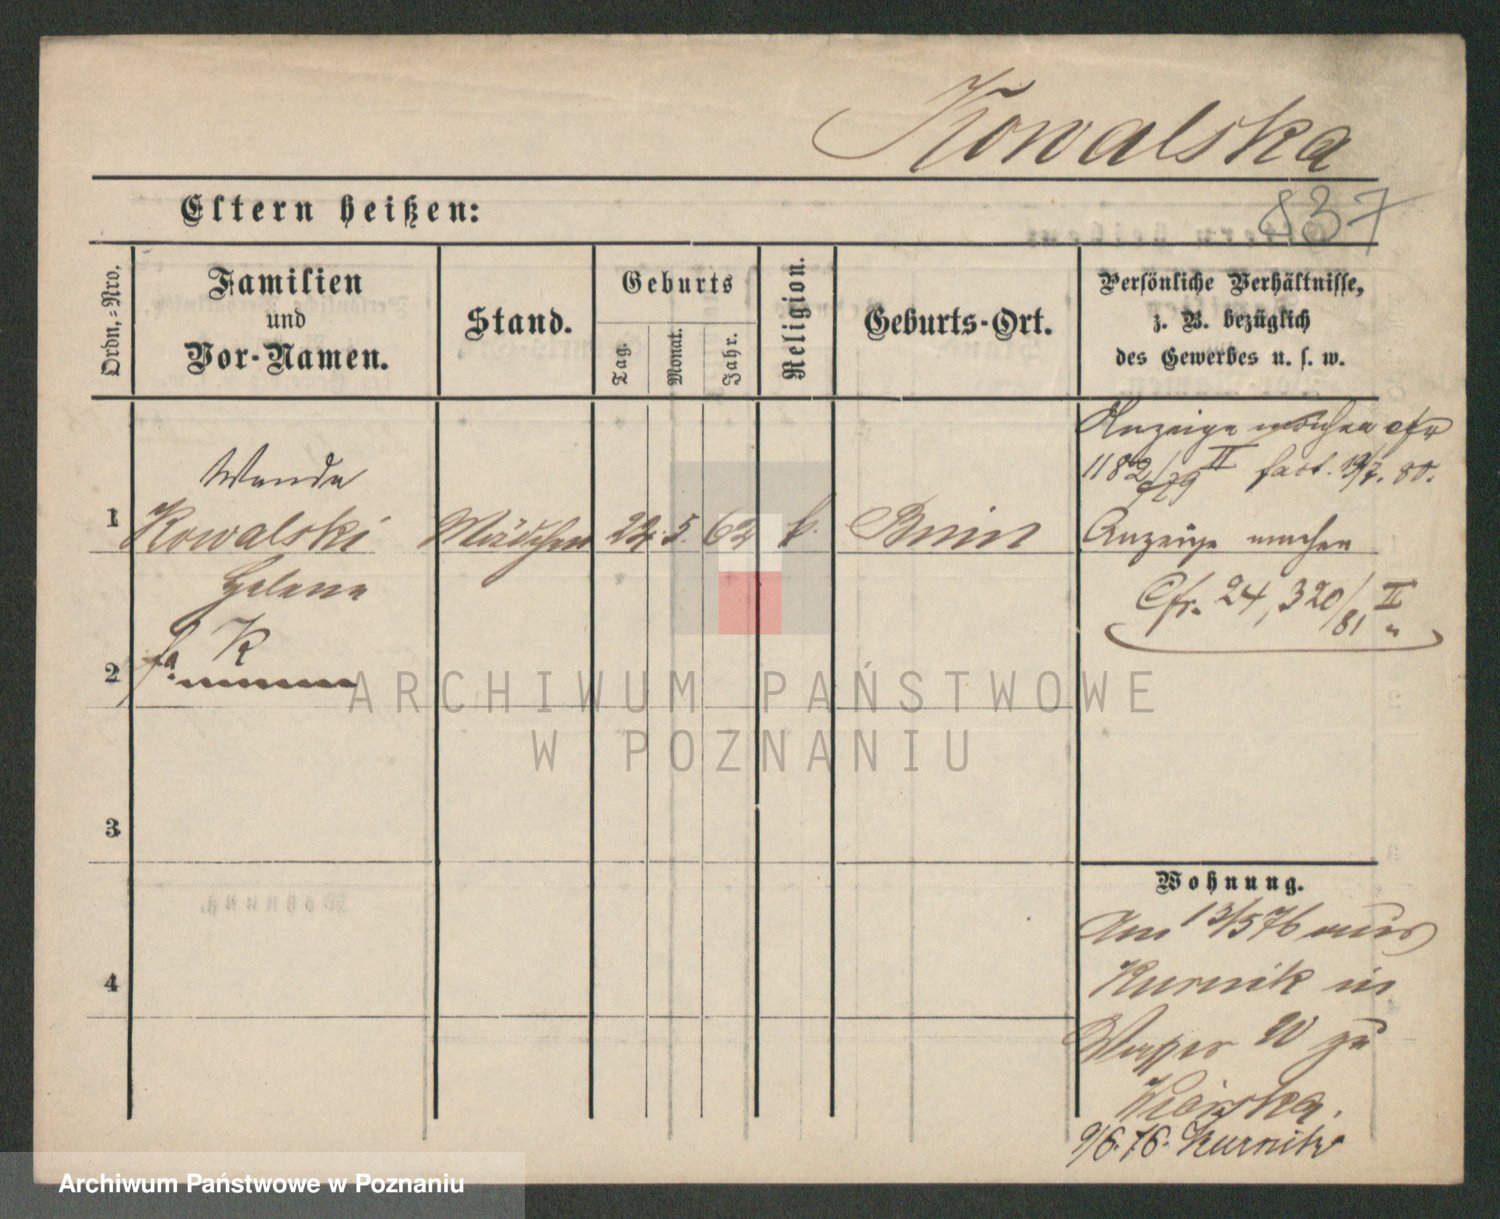 Kowalska
837
Eltern heißen:
Ordn.-Nro.
Familien
und
Vor-Namen.
Stand.
Geburts
Tag.
Monat.
Jahr.
Religion.
Geburts-Ort.
Persönliche Verhältnisse,
z. B. bezüglich
des Gewerbes u. s. w.
Wanda
1 Kowalski Mädchen 24. 5. 62 k. Bnin
Helene
2 K
3
4
Anzeige machen cfr
1182/79 II 19/7. 80.
Anzeige machen
Cfr. 24, 320/81 II
Wohnung.
Am 13/5 76 aus
Kurnik in
Wasser 10 zu
9/6. 76. Kurnik
ARCHIWUM PAŃSTWOWE
W POZNANIU
Archiwum Państwowe w Poznaniu